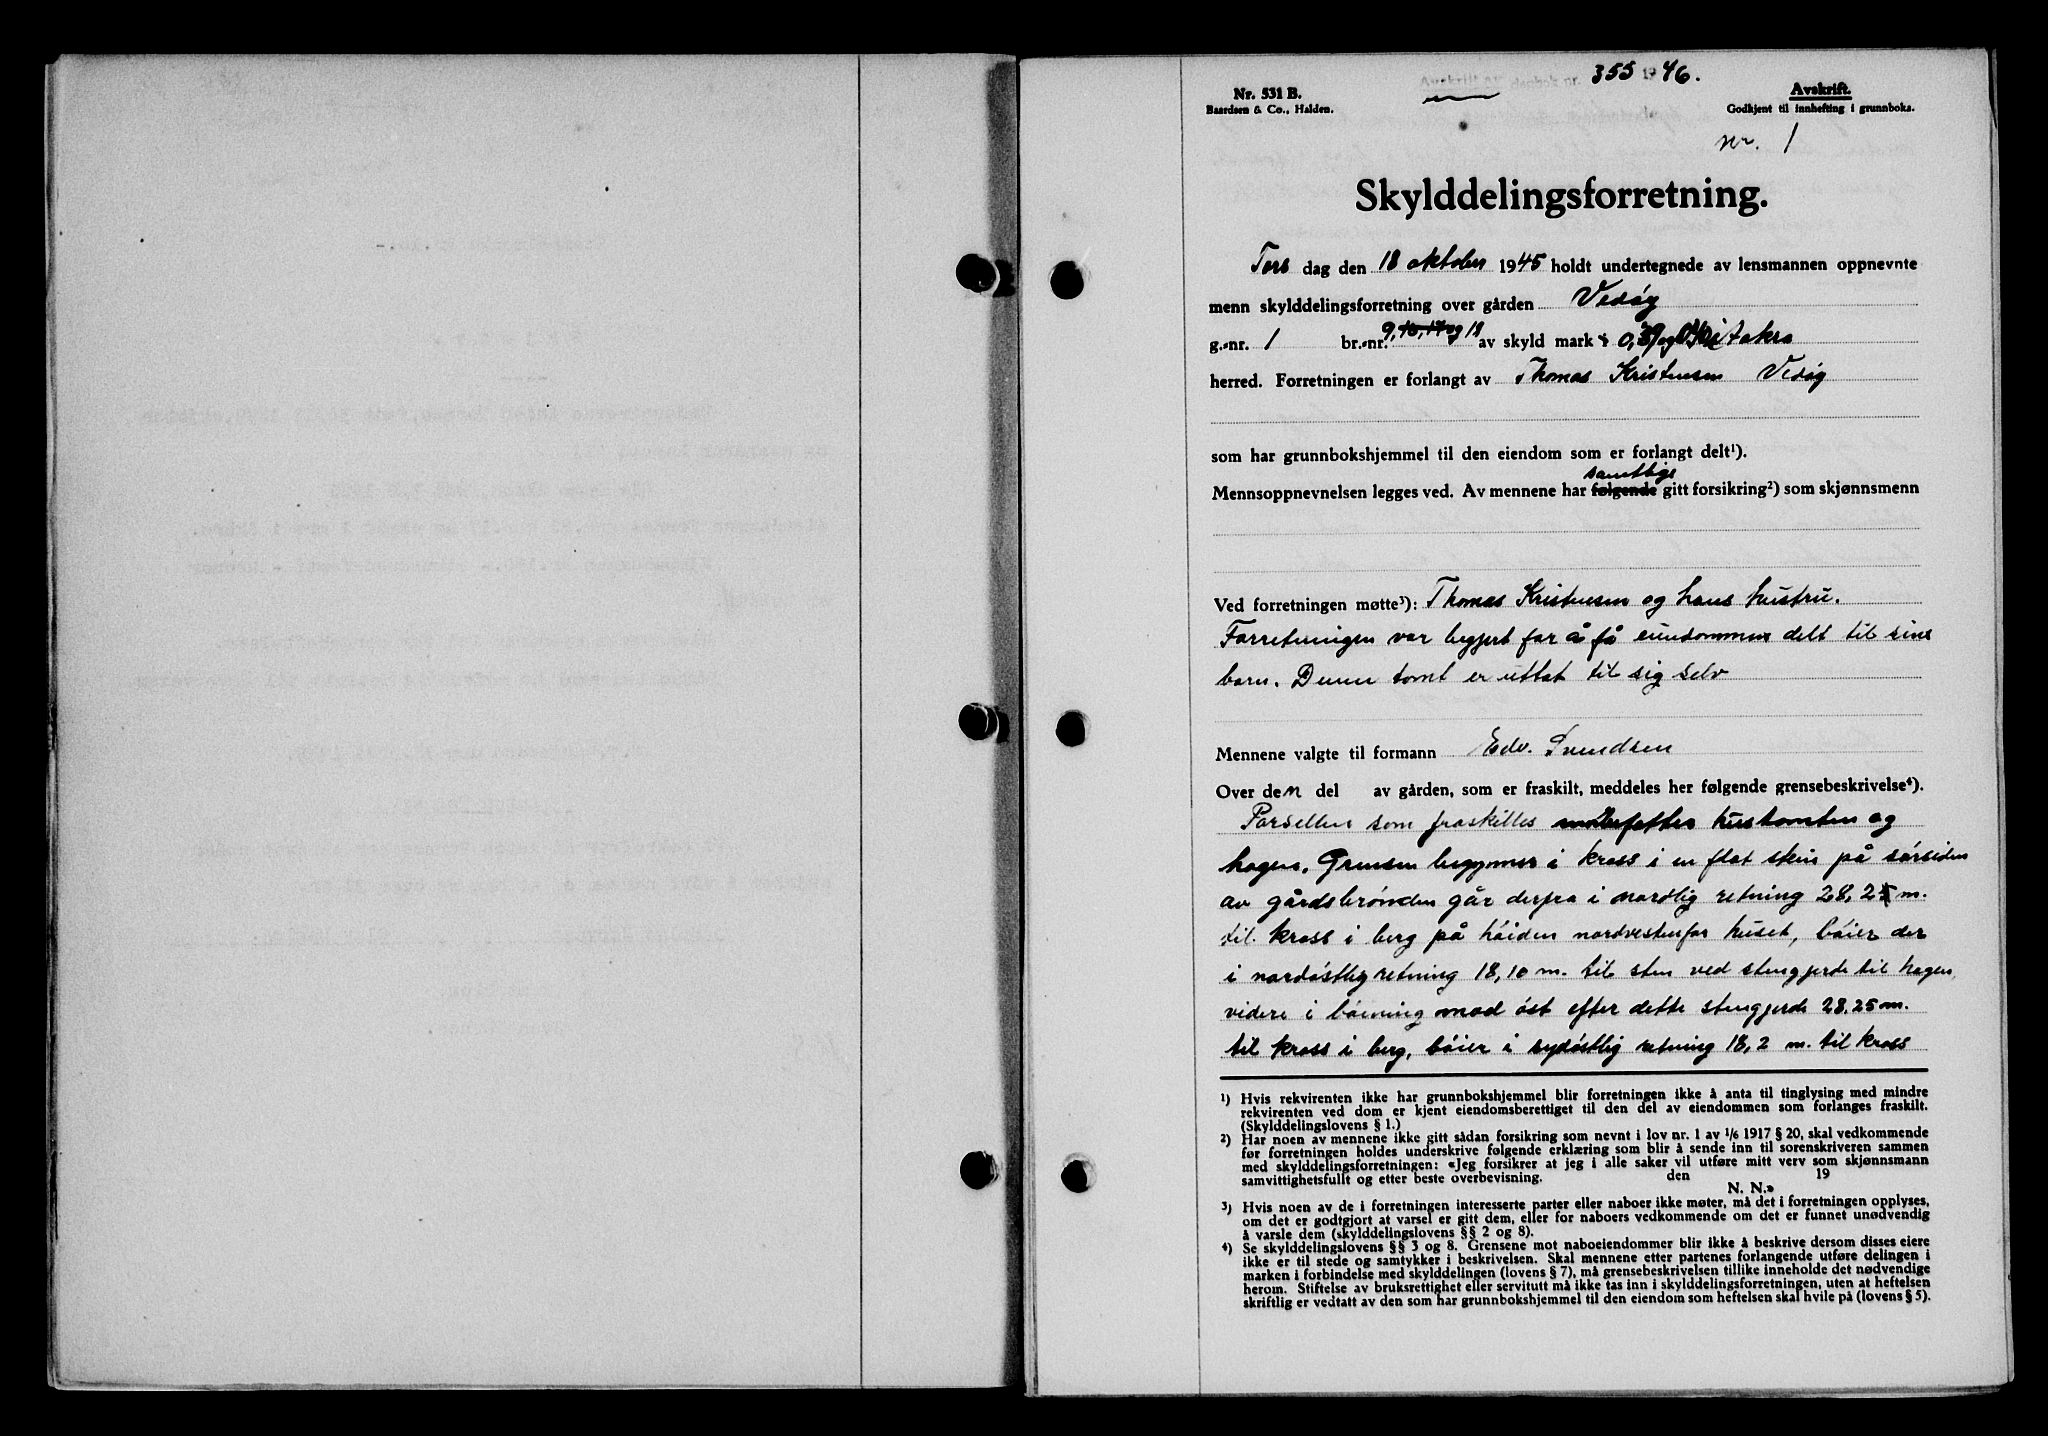 355 1946.
Nr. 531 B.
Baardsen & Co., Halden.
Avskrift.
Godkjent til innhefting i grunnboka.
nr. 1
Skylddelingsforretning.
Tors dag den 18 oktober 1945 holdt undertegnede av lensmannen oppnevnte
menn skylddelingsforretning over gården Vedøy
g.-nr. 1 br.-nr. 9, 16, 17 og 18 av skyld mark 0,39 og i Aakra
herred. Forretningen er forlangt av Thomas Kristensen Vedøy
som har grunnbokshjemmel til den eiendom som er forlangt delt¹).
samtlige
Mennsoppnevnelsen legges ved. Av mennene har følgende gitt forsikring²) som skjønnsmenn
Ved forretningen møtte³): Thomas Kristensen og hans hustru.
Forretningen var begjert for å få eiendommen delt til sine
barn. Denne tomt er uttat til sig selv
Mennene valgte til formann Edv. Svendsen
Over den del av gården, som er fraskilt, meddeles her følgende grensebeskrivelse⁴).
Parsellen som fraskilles hustomten og
hagen. Grensen begynner i kross i en flat stein på sørsiden
av gårdsbrønden går derfra i nordlig retning 28,25 m.
til kross i berg på høiden nordvestenfor huset, bøier der
i nordøstlig retning 18,10 m. til sten ved stengjerde til hagen,
videre i bøining mod øst efter dette stengjerde 28.25 m.
til kross i berg, bøier i sydøstlig retning 18,2 m. til kross
¹) Hvis rekvirenten ikke har grunnbokshjemmel blir forretningen ikke å anta til tinglysing med mindre
rekvirenten ved dom er kjent eiendomsberettiget til den del av eiendommen som forlanges fraskilt.
(Skylddelingslovens § 1.)
²) Har noen av mennene ikke gitt sådan forsikring som nevnt i lov nr. 1 av 1/6 1917 § 20, skal vedkommende
før forretningen holdes underskrive følgende erklæring som blir å sende inn til sorenskriveren sammen
med skylddelingsforretningen: «Jeg forsikrer at jeg i alle saker vil utføre mitt verv som skjønnsmann
samvittighetsfullt og etter beste overbevisning. den 19
N. N.»
³) Hvis noen av de i forretningen interesserte parter eller naboer ikke møter, må det i forretningen opplyses,
om det er godtgjort at varsel er gitt dem, eller for naboers vedkommende om det er funnet unødvendig
å varsle dem (skylddelingslovens §§ 2 og 8).
⁴) Se skylddelingslovens §§ 3 og 8. Grensene mot naboeiendommer blir ikke å beskrive dersom disses eiere
ikke er til stede og samtykker i beskrivelsen. Skal mennene etter partenes forlangende utføre delingen i
marken i forbindelse med skylddelingen (lovens § 7), må grensebeskrivelsen tillike inneholde det nødvendige
herom. Stiftelse av bruksrettighet eller servitutt må ikke tas inn i skylddelingsforretningen, uten at heftelsen
skriftlig er vedtatt av den som har grunnbokshjemmel til den eiendom som heftelsen skal hvile på (lovens § 5).